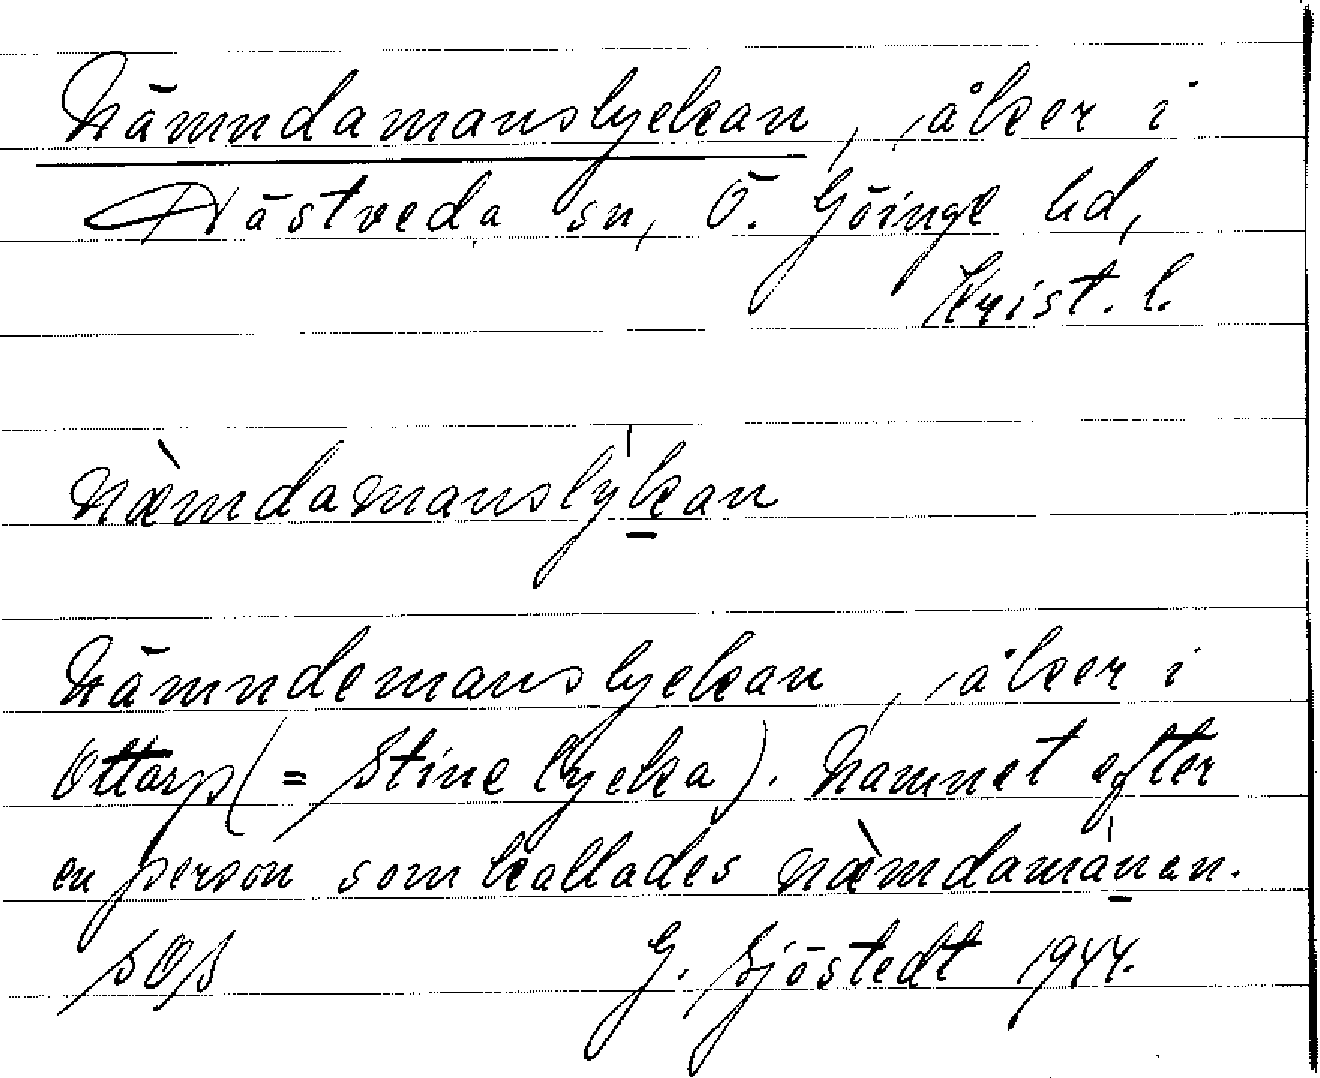 Nämndamanslyckan, åker i
Hästveda sn, Ö. Göinge hd,
Krist. l.
næ̀mdamanslýk̠an
Nämndemanslyckan, åker i
Ottarp (= Stine lycka). Namnet efter
en person som kallades næ̀mdamán̠an.
SOS G. Sjöstedt 1944.